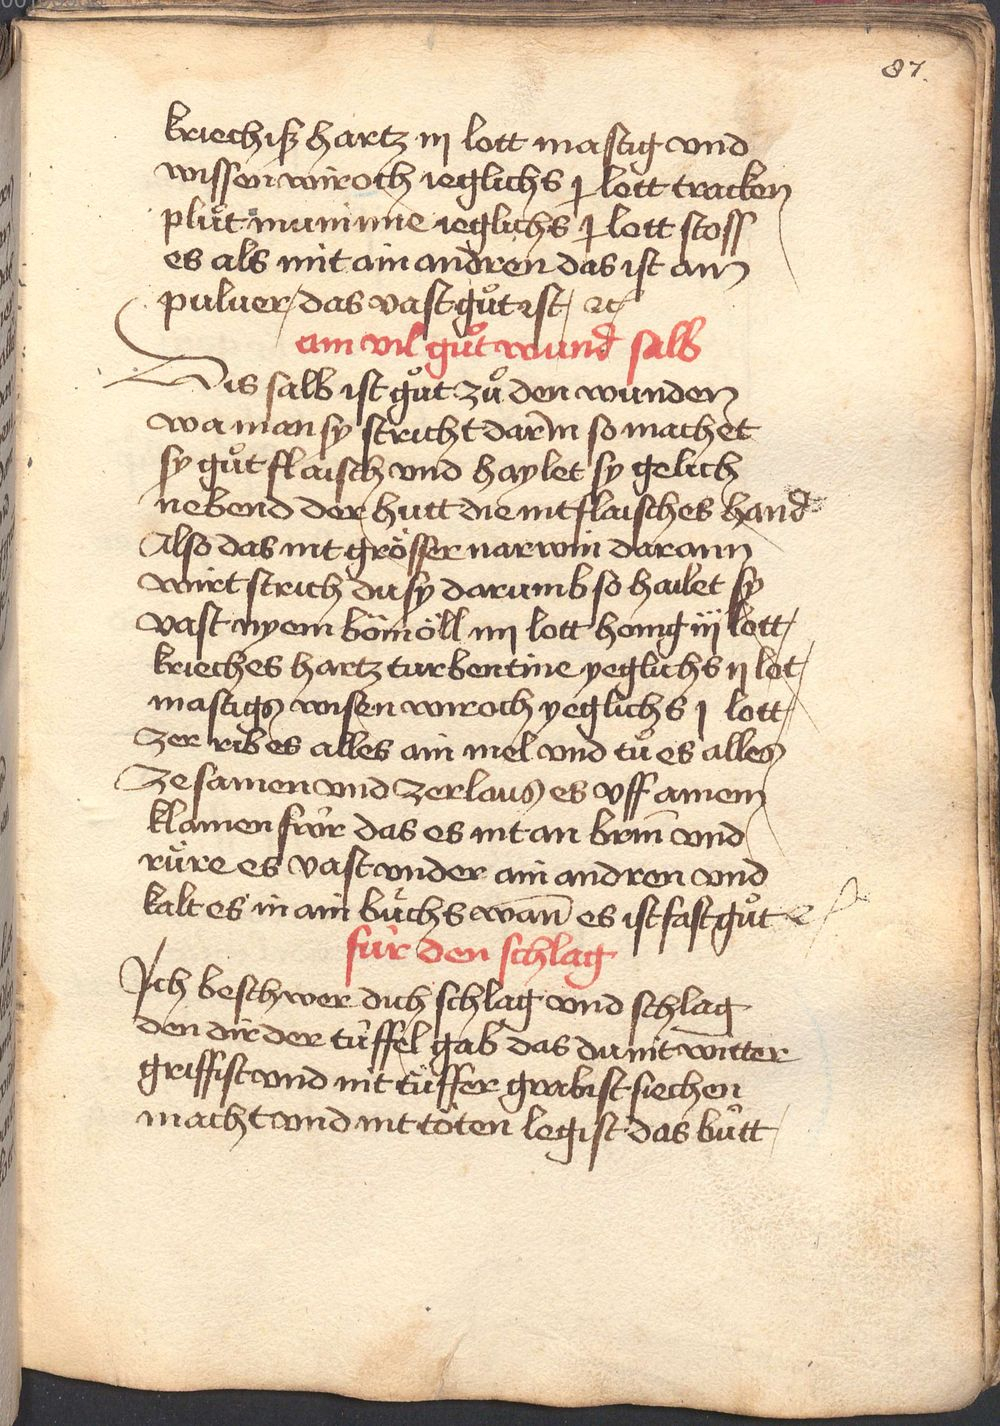 87.
kriechisß hartz iij lott mastig vnd
wissen wiroch ieglichs j lott tracken
plůt mumme ieglichs j lott stoss
es als mit ain andren das ist ain
puluer das vast gůt ist ꝛc
ain vil gůt wund salb
Dis salb ist gůt zů den wunden
wa man sy stricht darin so machet
sy gůt flaisch vnd haylet sy gelich
nebend der hutt die nit flaisches hand
Also das nit grösser narwin darann
wirt strich du sy darumb so hailet sy
vast nyem bömöll iiij lott honig iij lott
krieches hartz turbentine yeglichs ij lot
mastigs wisen wiroch yeglichs j lott
Zer rib es alles ain mel vnd tů es alles
Zesamen vnd zerlaus es vff ainem
klainen fwr das es nit an brin̄ vnd
rüre es vast vnder ain andren vnd
kalt es in ain büchs wan̄ es ist fast gůt ꝛc
für den schlag
Ich beschwer dich schlag vnd schlag
den dir der tüffel gab das du nit witter
griffist vnd nit tüffer grabist siechen
macht vnd nit töten legist das bütt